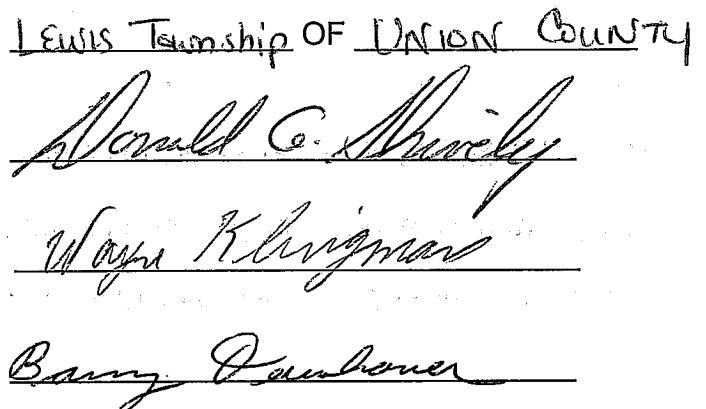 LEWIS Township OF UNION COUNTY
Donald C. Shively
Wayne Klingman
Barry